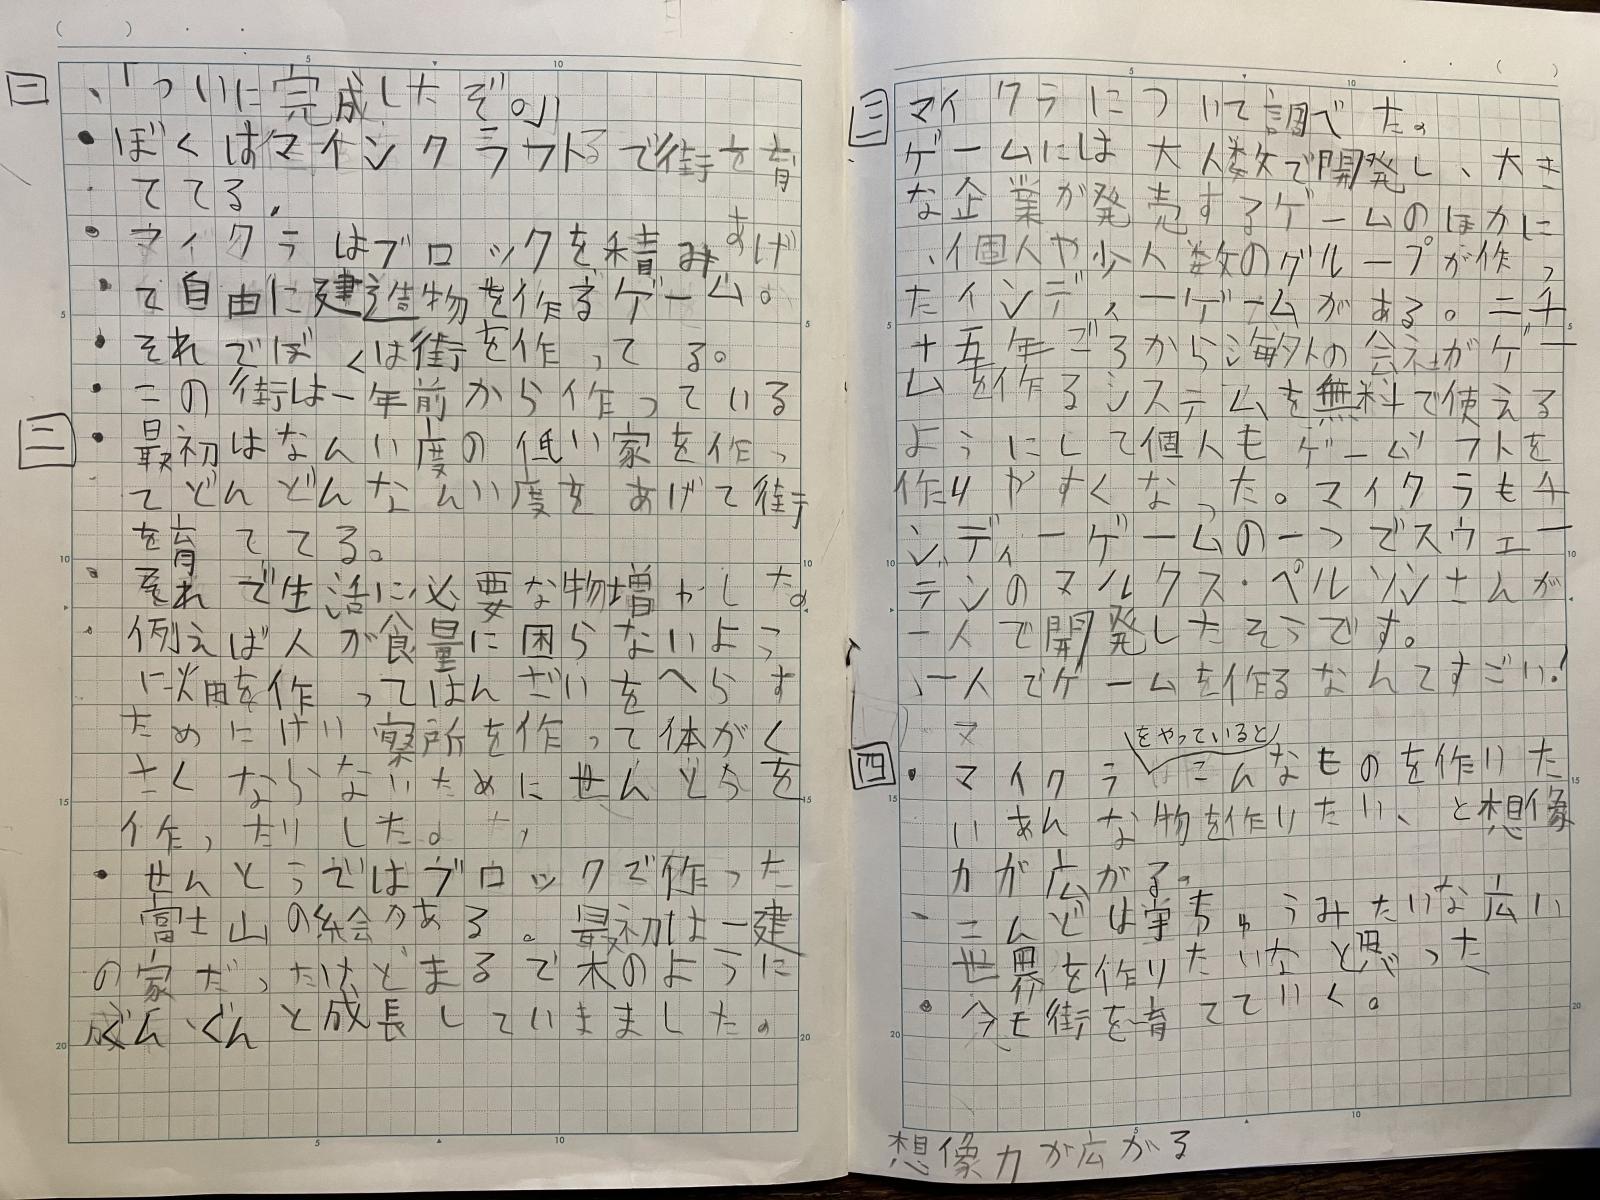 一
「ついに完成したぞ。」
ぼくはマインクラフトで街を育
ててる。
マイクラはブロックを積みあげ
て自由に建造物を作るゲーム。
それでぼくは街を作ってる。
この街は一年前から作っている
二
最初はなんい度の低い家を作っ
てどんどんなんい度をあげて街
を育ててる。
それで生活に必要な物増やした。
例えば人が食量に困らないよう
に畑を作ってはんざいをへらす
ためにけい察所を作って体がく
さくならないためにせんとうを
作ったりした。
せんとうではブロックで作った
富士山の絵がある。最初は一建
の家だったけどまるで木のように
ぐんぐんと成長していまました。
三
マイクラについて調べた。
ゲームには大人数で開発し、大き
な企業が発売するゲームのほかに
、個人や少人数のグループが作っ
たインディーゲームがある。二千
十五年ごろから海外の会社がゲー
ムを作るシステムを無料で使える
ようにして個人もゲームソフトを
作りやすくなった。マイクラもイ
ンディーゲームの一つでスウェー
デンのマルクス・ペルソンさんが
一人で開発したそうです。
一人でゲームを作るなんてすごい!
四
をやっていると
マイクラこんなものを作りた
いあんな物を作りたい、と想像
力が広がる。
こんどは宇ちゅうみたいな広い
世界を作りたいなと思った
今も街を育てていく。
想像力が広がる